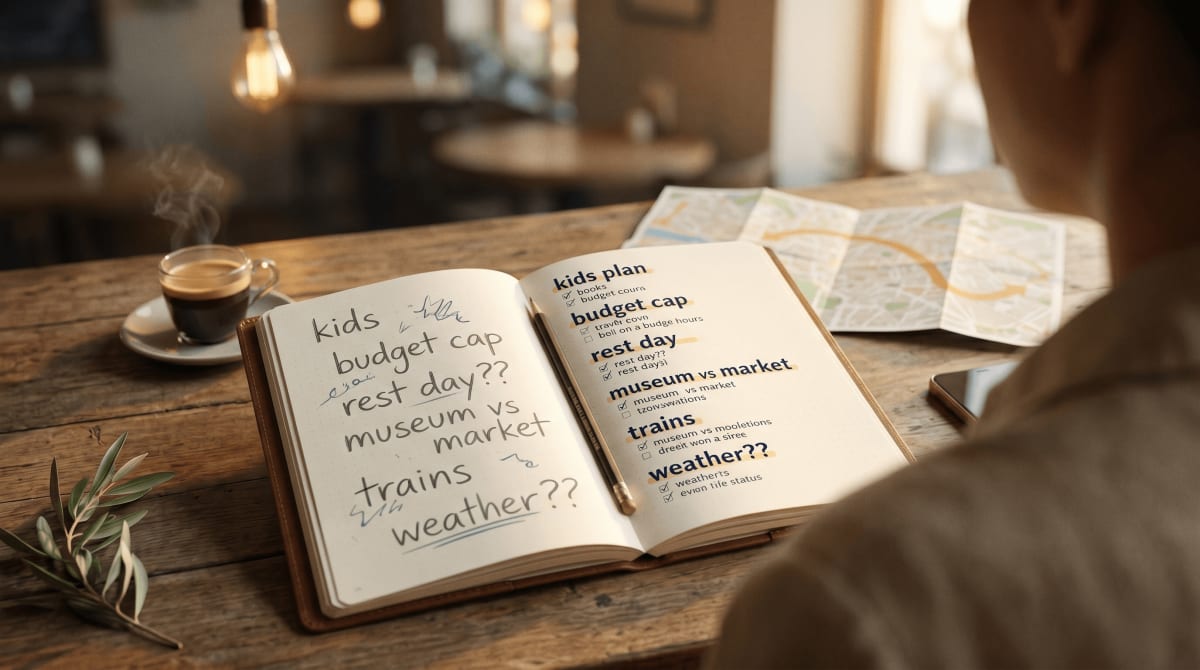 kids
budget cap
rest day??
museum vs
market
trains
weather??
kids plan
books
budget courn
budget cap
travēr covn
boll on a budge hours
rest day
rest day??
rest days!
museum vs market
museum vs market
tzovswations
trains
museum vs mooletions
dreeit won a siree
weather??
weatherts
evion life status